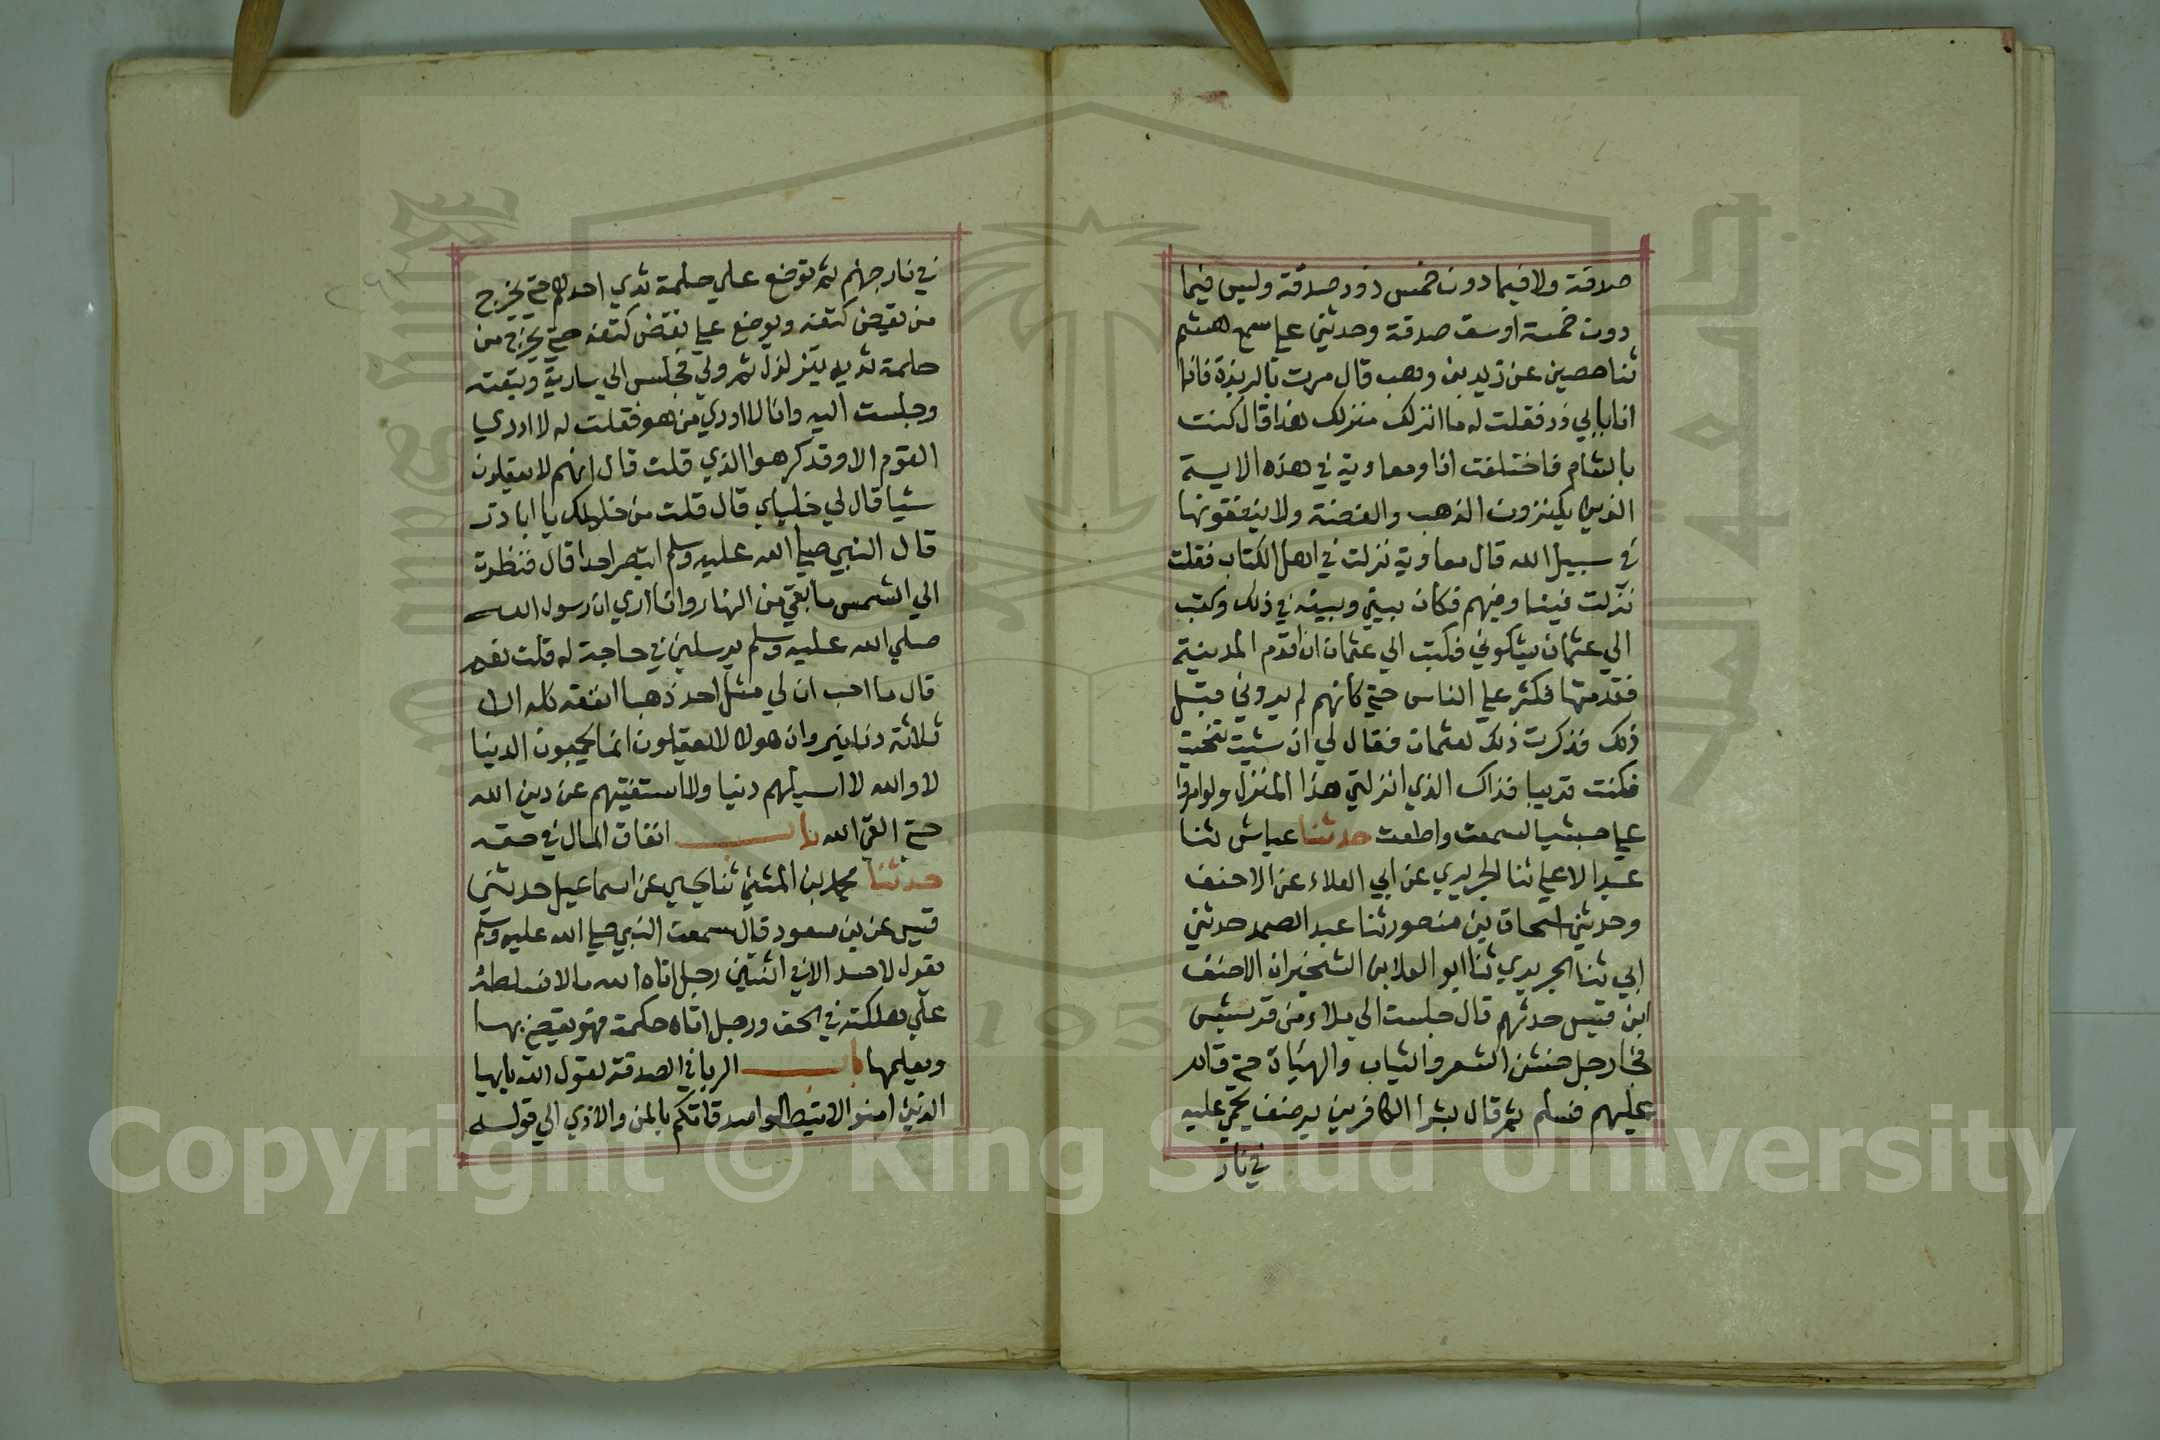 صدقة ولا فيما دون خمس ذود صدقة وليس فيما
دون خمسة اوسق صدقة وحدثني علي سمع هشيم
ثنا حصين عن زيد بن وهب قال مررت بالربذة فاذا
انا بابي ذر فقلت له ما انزلك منزلك هذا قال كنت
بالشام فاختلفت انا ومعاوية في هذه الاية
الذين يكنزون الذهب والفضة ولا ينفقونها
في سبيل الله قال معاوية نزلت في اهل الكتاب فقلت
نزلت فينا وفيهم فكان بيني وبينه في ذلك وكتب
الي عثمان يشكوني فكتب الي عثمان ان اقدم المدينة
فقدمتها فكثر علي الناس حتي كانهم لم يروني قبل
ذلك فذكرت ذلك لعثمان فقال لي ان شيت تنحيت
فكنت قريبا فذاك الذي انزلني هذا المنزل ولو امروا
علي حبشيا لسمعت واطعت حدثنا عياش ثنا
عبد الاعلي ثنا الجريري عن ابي العلاء عن الاحنف
وحدثني اسحاق بن منصور ثنا عبد الصمد حدثني
ابي ثنا الجريري ثنا ابو العلا بن الشخير ان الاحنف
ابن قيس حدثهم قال جلست الي ملاء من قريش
فجا رجل خشن الشعر والثياب والهياة حتي قام
عليهم فسلم ثم قال بشر الكافرين برضف يحمي عليه
في نار
في نار جهنم ثم توضع علي حلمة ثدي احدهم حتي يخرج
من نغض كتفه ويوضع علي نغض كتفه حتي يخرج من
حلمة ثديه يتزلزل ثم ولي فجلس الي سارية وتبعته
وجلست اليه وانا لا ادري من هو فقلت له لا اري
القوم الا وقد كرهوا الذي قلت قال انهم لا يعقلون
شيا قال لي خليلي قال قلت من خليلك يا ابا ذر
قال النبي صلي الله عليه وسلم اتبصر احدا قال فنظرت
الي الشمس ما بقي من النهار وانا اري ان رسول الله
صلي الله عليه وسلم يرسلني في حاجة له قلت نعم
قال ما احب ان لي مثل احد ذهبا انفقه كله الا
ثلاثة دنانير وان هولا لا يعقلون انما يجمعون الدنيا
لا والله لا اسيلهم دنيا ولا استفتيهم عن دين الله
حتي القي الله باب انفاق المال في حقه
حدثنا محمد بن المثني ثنا يحيي عن اسماعيل حدثني
قيس عن بن مسعود قال سمعت النبي صلي الله عليه وسلم
يقول لا حسد الا في اثنتين رجل اتاه الله مالا فسلطه
علي هلكته في الحق ورجل اتاه حكمة فهو يقضي بها
ويعلمها باب الريا في الصدقة لقول الله يايها
الذين امنوا لا تبطلوا صدقاتكم بالمن والاذي الي قوله
Copyright © King Saud University